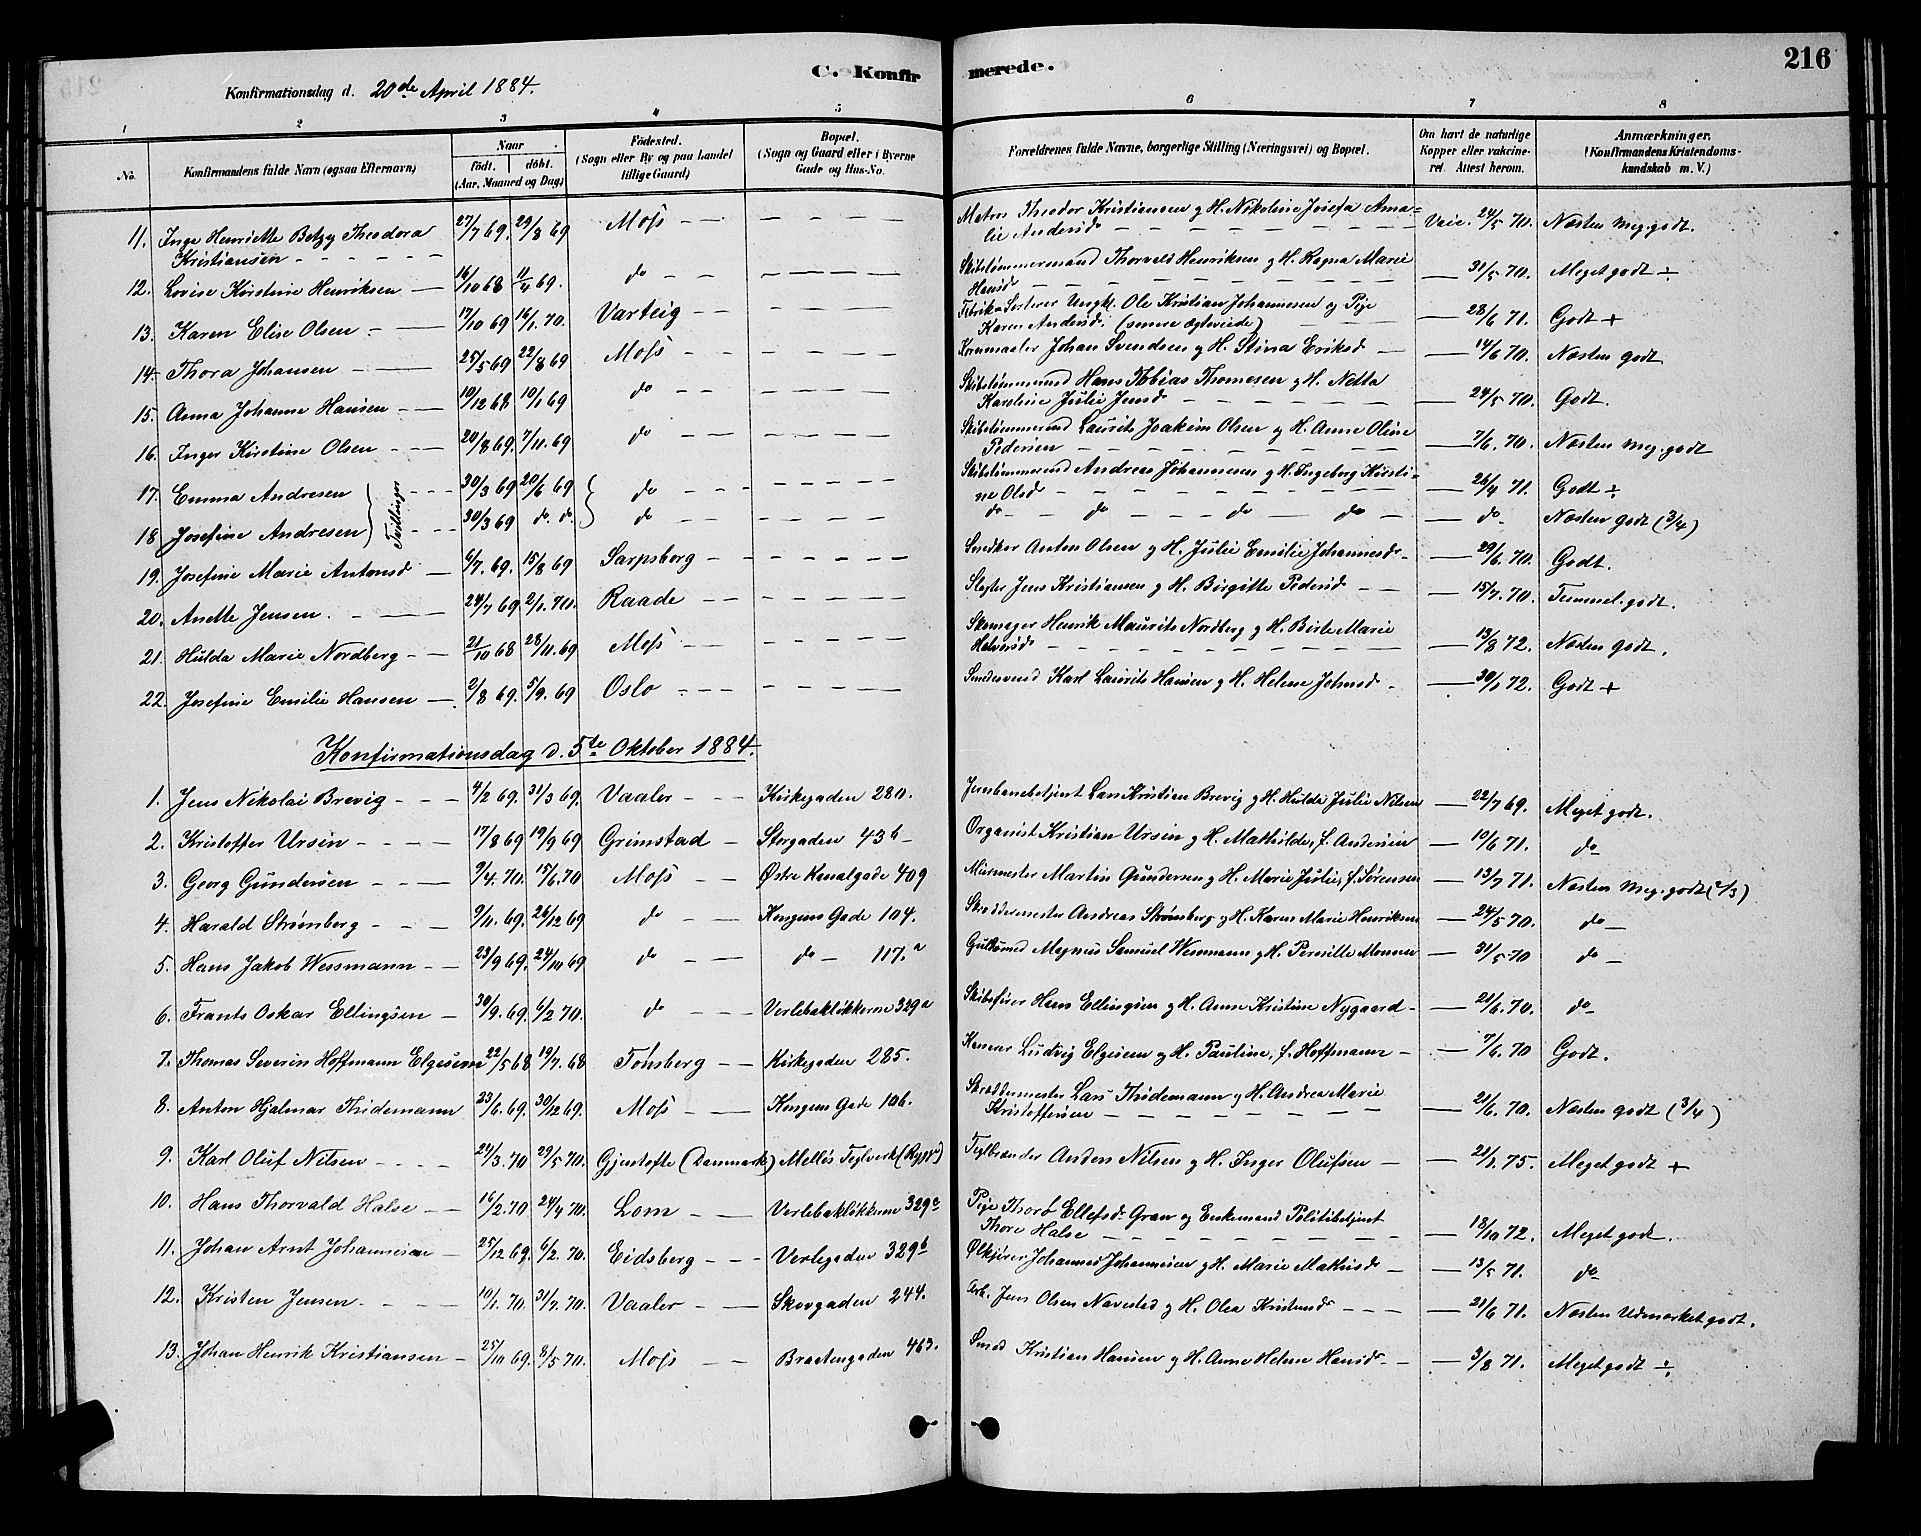 216
C. Konfir merede.
Konfirmationsdag d. 20de April 1884.
1 2 3 4 5 6 7 8
No. Konfirmandens fulde Navn (ogsaa Efternavn) Naar født. døbt. (Aar, Maaned og Dag) Födested. (Sogn eller By og paa Landet tillige Gaard) Bopæl. (Sogn og Gaard eller i Byerne Gade og Hus-No. Forældrenes fulde Navne, borgerlige Stilling (Næringsvei) og Bopæl. Om havt de naturlige Kopper eller vakcineret. Attest herom. Anmærkninger. (Konfirmandens Kristendomskundskab m. V.)
11. Inga Henriette Betzy Theodora Kristiansen 27/7 69. 29/8 69 Moss Matros Theodor Kristiansen g H. Nikoline Josefa Amalie Andersd Vaic. 24/5 70. Næsten meg. godt.
12. Lovise Kirstine Henriksen 16/10 68 11/4 69. do Skibstømmermand Thorvald Henriksen g H. Ragna Marie Hansd 31/5 70. Meget godt ÷
13. Karen Elise Olsen 17/10 69 16/1 70. Varteig Ungk. Ole Kristian Johannesen og Pige Karen Andersd. (senere ægteviede) 28/6 71. Godt +
14. Thora Johansen 25/5 69 22/8 69 Moss Kornmaaler Johan Svendsen g H. Stina Eriksd 14/6 70. Næsten godt
15. Anna Johanne Hansen 19/12 68 10/1 69 do Skibstømmermd Hans Tobias Thomesen g H. Netta Karoline Julie Jensd 24/5 70. Godt.
16. Inger Kirstine Olsen 20/8 69. 7/11. 69 do Skibstømmermd Laurits Joakim Olsen g H. Anne Oline Pedersen 7/6. 70. Næsten meg. godt
17. Emma Andresen Tvillinger 30/3 69 20/6 69 do Skibstømmermd Andreas Johannesen g H. Ingeborg Kirstine Olsd 26/4 71. Godt ÷
18 Josefine Andresen 30/3 69 do. do. do do do do do do Næsten godt (3/4)
19. Josefine Marie Antonsd 6/7. 69. 15/8 69 Sarpsborg Snedker Anton Olsen g H. Julie Emilie Johannesd 29/6 70. Godt.
20. Anette Jensen. 24/7 69 2/1. 70. Raade Slagter Jens Kristiansen g H. Birgitte Pedersd 15/7. 70. Temmel. godt.
21. Hulda Marie Nordberg 21/10 68 28/11. 69 Moss Skomager Henrik Maurits Nordberg g H. Birte Marie Halvorsd 13/8 72. Næsten godt.
22. Josefine Emilie Hansen 2/8 69. 5/9. 69 Oslo Smedesvend Karl Laurits Hansen g H. Helene Johnsd 30/1 72. Godt +
Konfirmationsdag d. 5te Oktober 1884.
1. Jens Nikolai Brevig 4/2 69. 31/3 69. Vaaler Kirkegaden 280. Jernbanebetjent Lars Kristian Brevig g H. Hulda Julie Nilsen 22/7 69. Meget godt.
2. Kristoffer Ursin 17/8 69 19/9 69 Grimstad Storgaden 43b Organist Kristian Ursin g H. Mathilde, f. Andersen 10/6 71. do
3. Georg Gundersen 9/4. 70. 15/6. 70 Moss Østre Kanalgade 409 Murmester Martin Gundersen g H. Marie Julie, f. Sørensen 13/7 71. Næsten meg. godt (2/3)
4. Harald Strømberg 9/11. 69. 26/12 69 do Kongens Gade 104. Skræddermester Andreas Strømberg g H. Karen Marie Henriksen 24/5 70. do
5. Hans Jakob Wessmann 23/9 69. 24/10 69 do do 117.a Guldsmed Magnus Samuel Wessmann g H. Pernille Monsen 31/5 70 do
6. Frants Oskar Ellingsen 30/9. 69. 6/2 70. do Verlebakløkkerne 329a Skibsfører Hans Ellingsen g H. Anne Kristine Nygaard 21/6. 70. do
7. Thomas Severin Hoffmann Elgesem 22/5 68 19/7. 68 Tønsberg Kirkegaden 285. Ludvig Elgesem g H. Pauline, f. Hoffmann 7/6. 70 Godt.
8. Anton Hjalmar Thidemann 23/6. 69. 30/12 69. Moss Kongens Gade 106. Skræddermester Lars Thidemann g H. Andrea Marie Kristoffersen 21/6. 70. Næsten godt (3/4)
9. Karl Oluf Nilsen 24/3. 70 29/5 70. Gjentofte (Danmark) Melløs Teglverk (Rygge) Teglbrænder Anders Nilsen g H. Inger Olufsen 21/1. 75. Meget godt +
10. Hans Thorvald Halse 16/2. 70 24/4 70. Lom Verlebakløkkerne 329a Pige Thorø Ellefsd Gran og Enkemand Politibetjent Thore Halse 18/10 72. Meget godt.
11. Johan Arnt Johannesen 25/12 69. 6/2. 70. Eidsberg Verlegaden 329b Ølkjører Johannes Johannesen g H. Marie Mathisd 13/5 71. do
12. Kristen Jensen 19/1. 70. 31/7. 70. Vaaler Skovgaden 244. Arb. Jens Olsen Navestad g H. Olea Kristensd 21/6 71. Næsten Udmærket godt.
13. Johan Henrik Kristiansen 25/10 69. 8/5 70. Moss Braatengaden 463. Smed Kristian Hansen g H. Anne Helene Hansd 3/8 71. Meget godt ÷